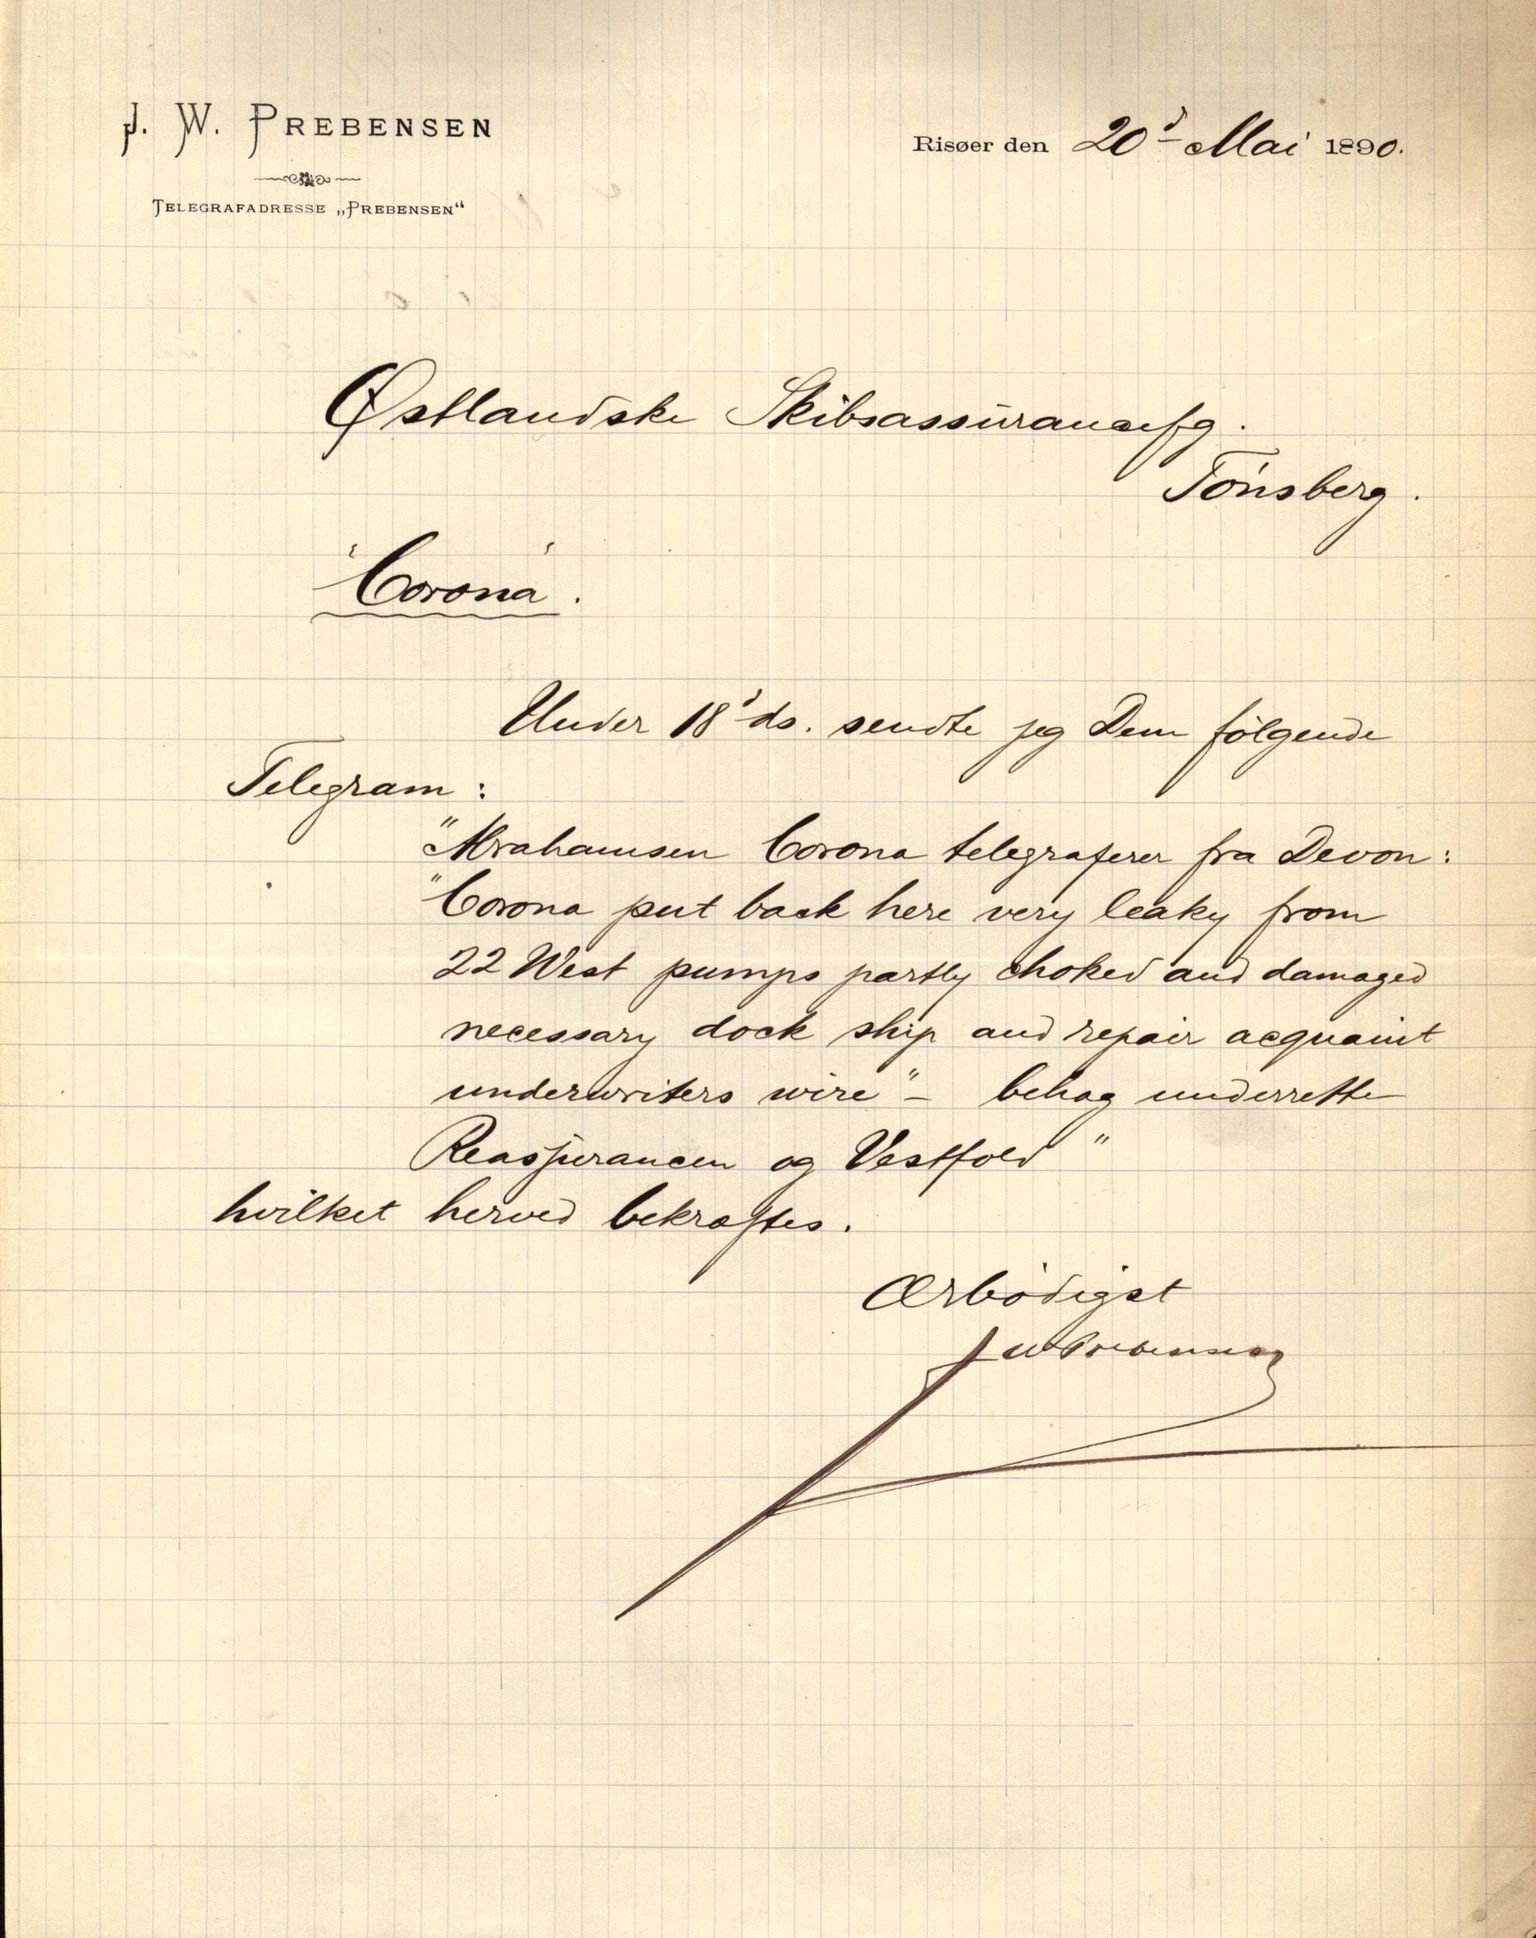 J. W. PREBENSEN
TELEGRAFADRESSE „PREBENSEN“
Risøer den 20d Mai 1890.
Østlandske Skibsassurancefg.
Tönsberg.
"Corona".
Under 18d ds. sendte jeg Dem følgende
Telegram:
"Abrahamsen Corona telegraferer fra Devon:
"Corona put back here very leaky from
22 West pumps partly choked and damaged
necessary dock ship and repair acquaint
underwriters wire" – behag underrette
Reassurancen og Vestfold"
hvilket herved bekræftes.
Ærbödigst
J W Prebensen